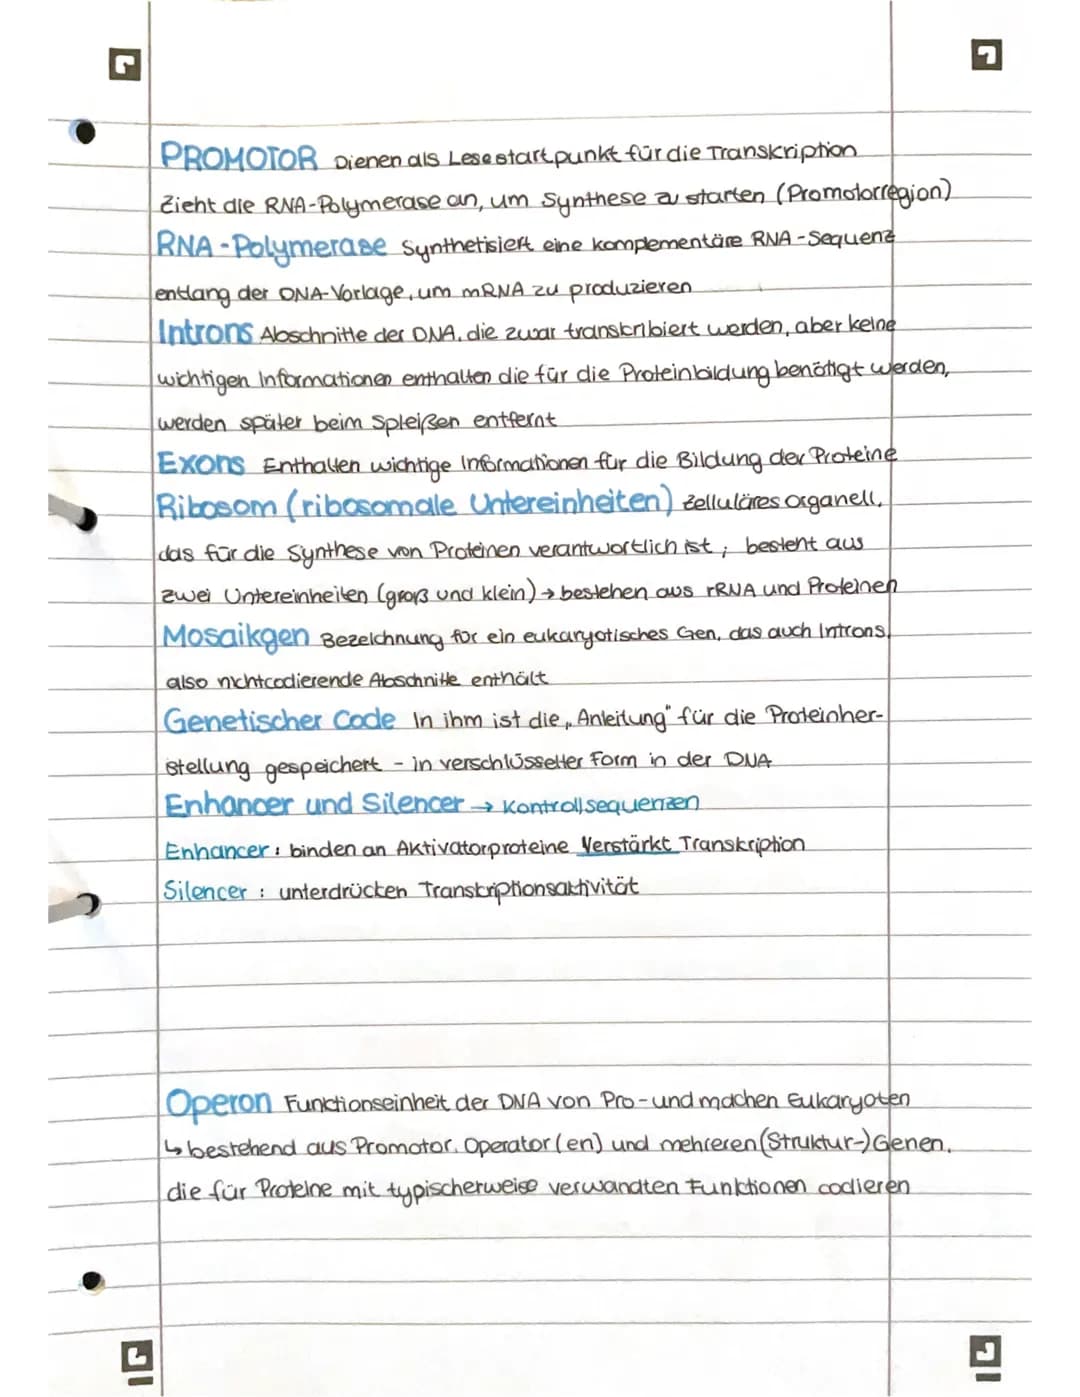 PROMOTOR Dienen als Lesestartpunkt für die Transkription
Zieht die RNA-Polymerase an, um Synthese zu starten (Promotorregion)
RNA-Polymerase Synthetisiert eine komplementäre RNA-Sequenz
entlang der DNA-Vorlage, um mRNA zu produzieren
Introns Abschnitte der DNA, die zwar transkribiert werden, aber keine
wichtigen Informationen enthalten die für die Proteinbildung benötigt werden,
werden später beim Spleißen entfernt
Exons Enthalten wichtige Informationen für die Bildung der Proteine
Ribosom (ribosomale Untereinheiten) Zelluläres Organell,
das für die Synthese von Proteinen verantwortlich ist; besteht aus
zwei Untereinheiten (groß und klein) → bestehen aus rRNA und Proteinen
Mosaikgen Bezeichnung für ein eukaryotisches Gen, das auch Introns,
also nichtcodierende Abschnitte enthält
Genetischer Code In ihm ist die „Anleitung" für die Proteinher-
stellung gespeichert - in verschlüsselter Form in der DNA
Enhancer und Silencer → Kontrollsequenzen
Enhancer: binden an Aktivatorproteine Verstärkt Transkription
Silencer : unterdrücken Transkriptionsaktivität
Operon Functionseinheit der DNA von Pro- und machen Eukaryoten
↳ bestehend aus Promotor, Operator(en) und mehreren (Struktur-) Genen,
die für Proteine mit typischerweise verwandten Funktionen codieren